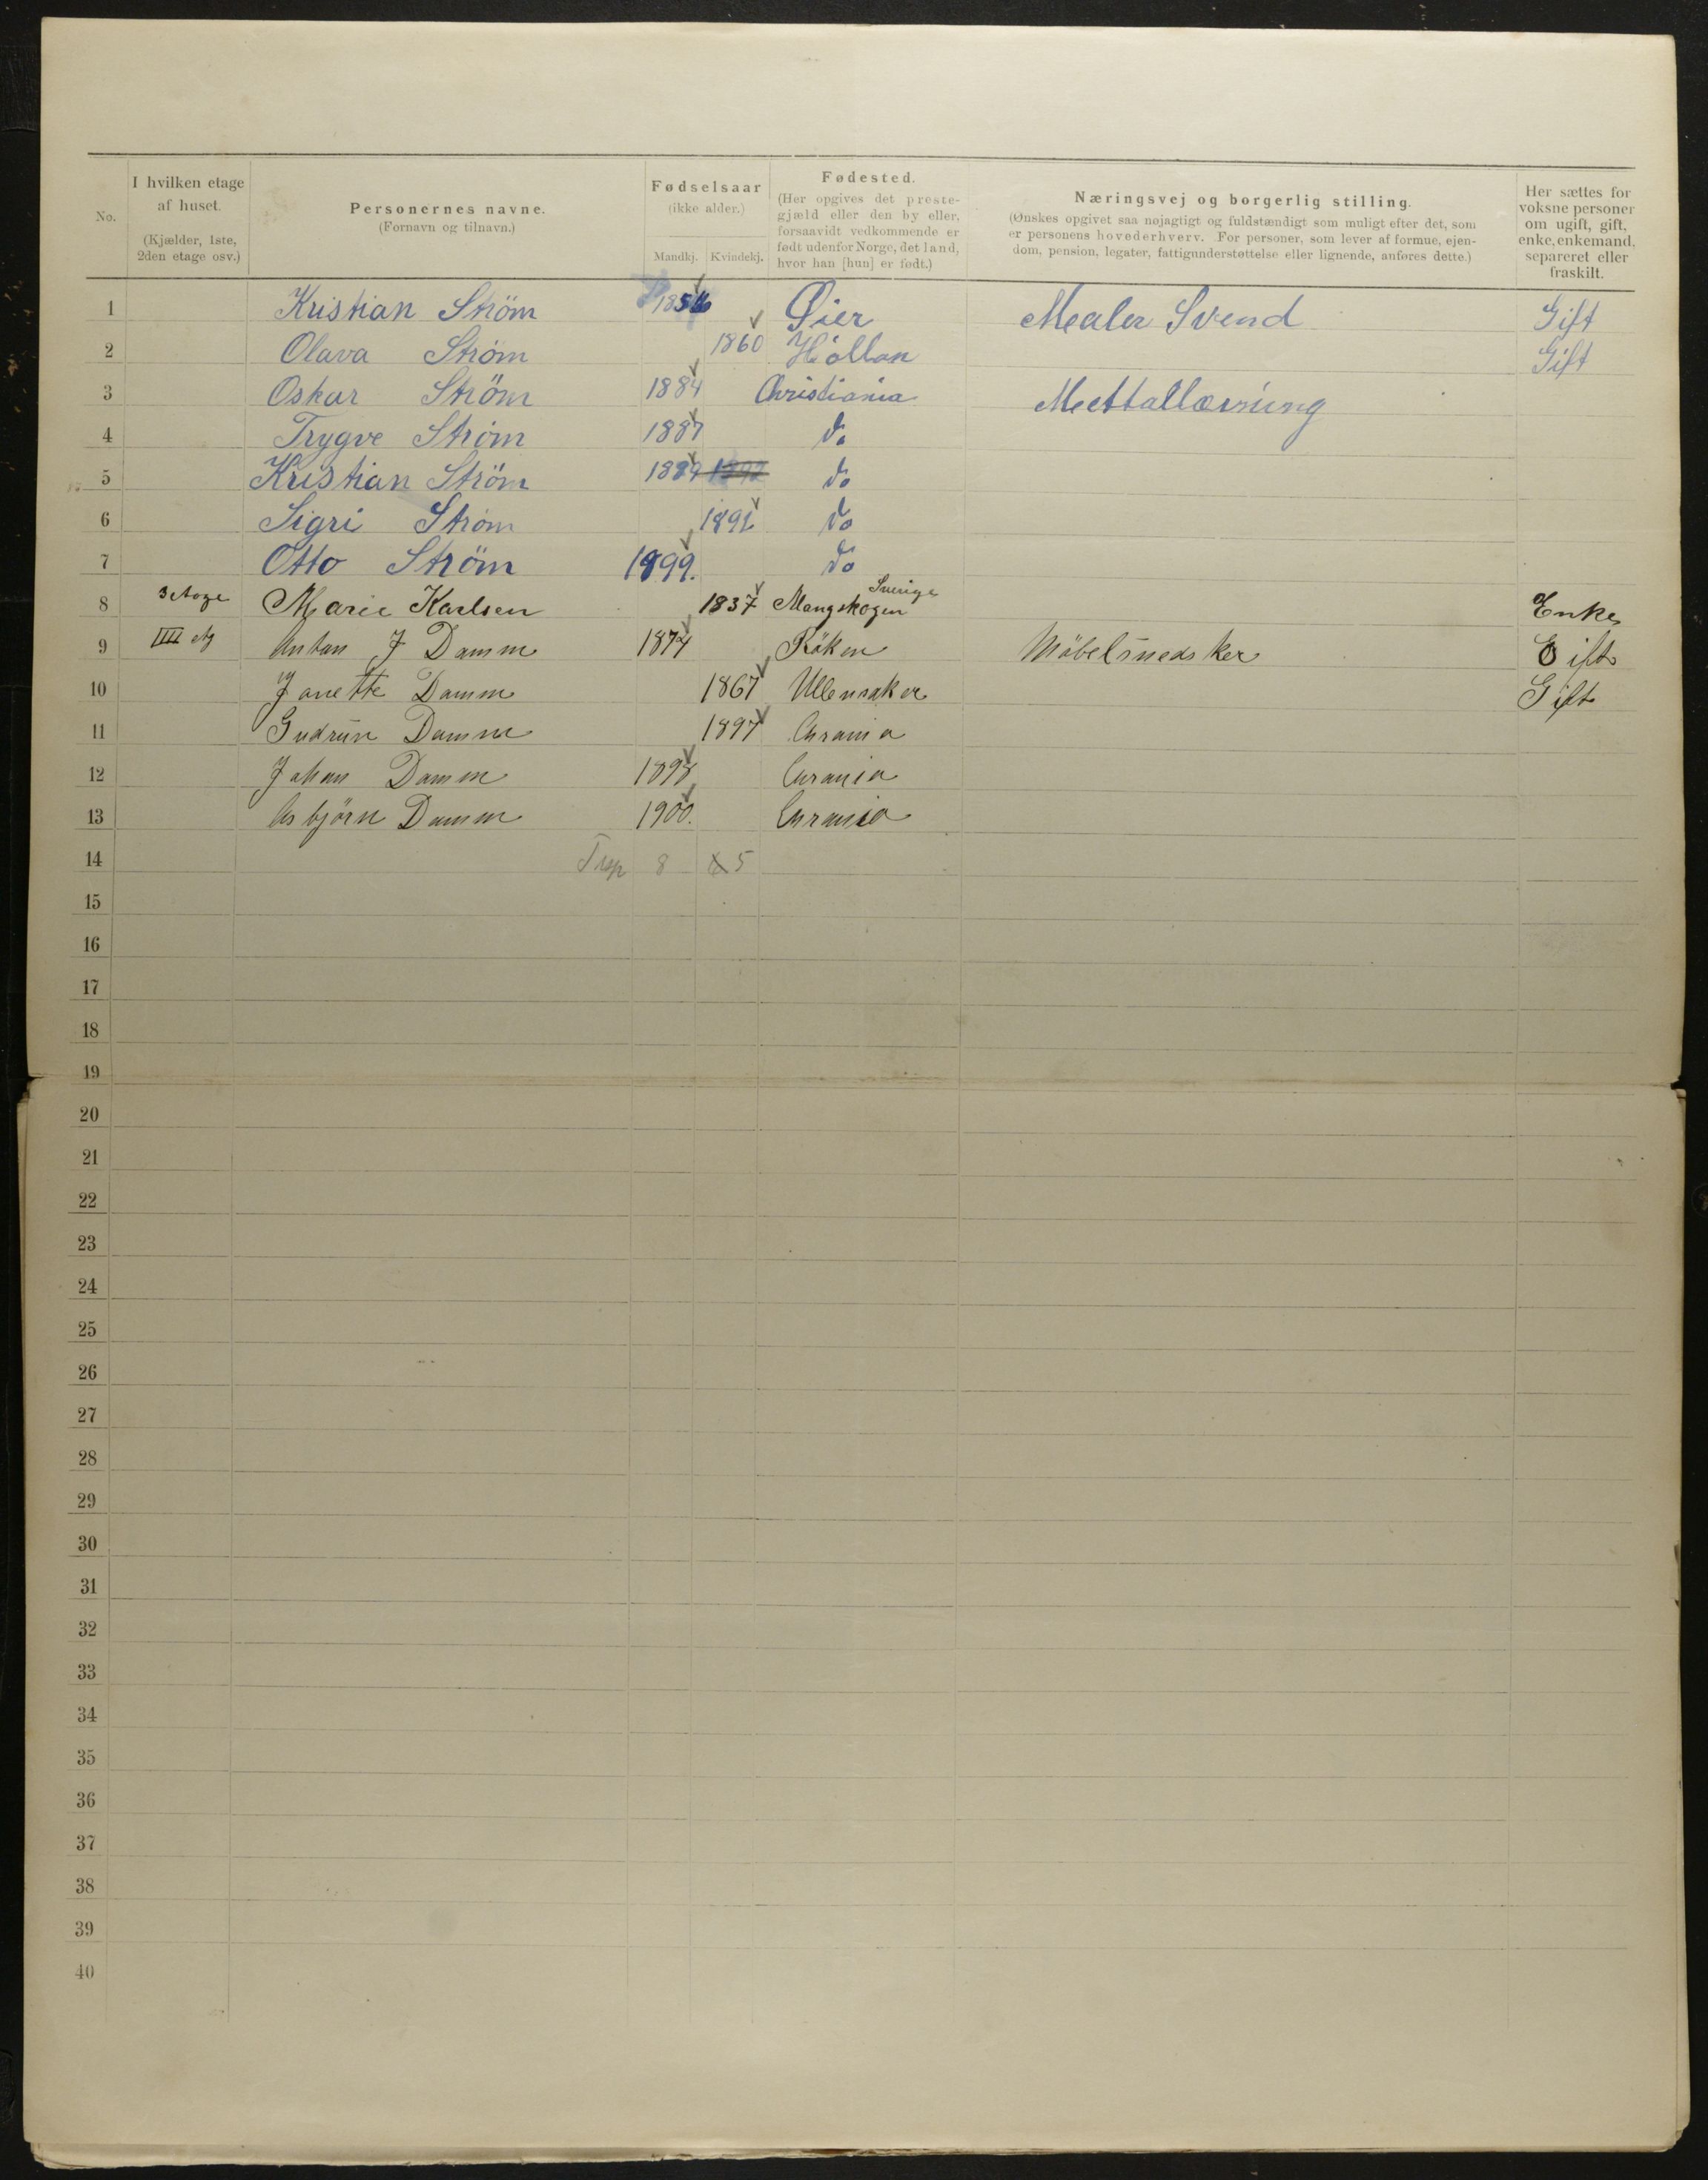 No.
I hvilken etage af huset. (Kjælder, 1ste, 2den etage osv.)
Personernes navne. (Fornavn og tilnavn.)
Fødselsaar (ikke alder.) Mandkj. Kvindekj.
Fødested. (Her opgives det prestegjæld eller den by eller, forsaavidt vedkommende er født udenfor Norge, det land, hvor han [hun] er født.)
Næringsvej og borgerlig stilling. (Ønskes opgivet saa nøjagtigt og fuldstændigt som muligt efter det, som er personens hovederhverv. For personer, som lever af formue, ejendom, pension, legater, fattigunderstøttelse eller lignende, anføres dette.)
Her sættes for voksne personer om ugift, gift, enke, enkemand, separeret eller fraskilt.
1 Kristian Ström 1856 Øier Mealer Svend Gift
2 Olava Ström 1860 Hollan Gift
3 Oskar Ström 1884 Christiania Mettallærning
4 Trygve Ström 1887 do
5 Kristian Ström 1889 1892 do
6 Sigri Ström 1892 do
7 Otto Ström 1899. do
8 3 etage Marie Karlsen 1837 Mangskogen Sverige Enke
9 IIII etg Anton J Damm 1874 Röken Möbelsnedsker Gift
10 Janette Damm 1867 Ullensaker Gift
11 Gudrun Damm 1897 Chrania
12 Johan Damm 1898 Chrania
13 Asbjörn Damm 1900. Chrania
14 8 5
15
16
17
18
19
20
21
22
23
24
25
26
27
28
29
30
31
32
33
34
35
36
37
38
39
40